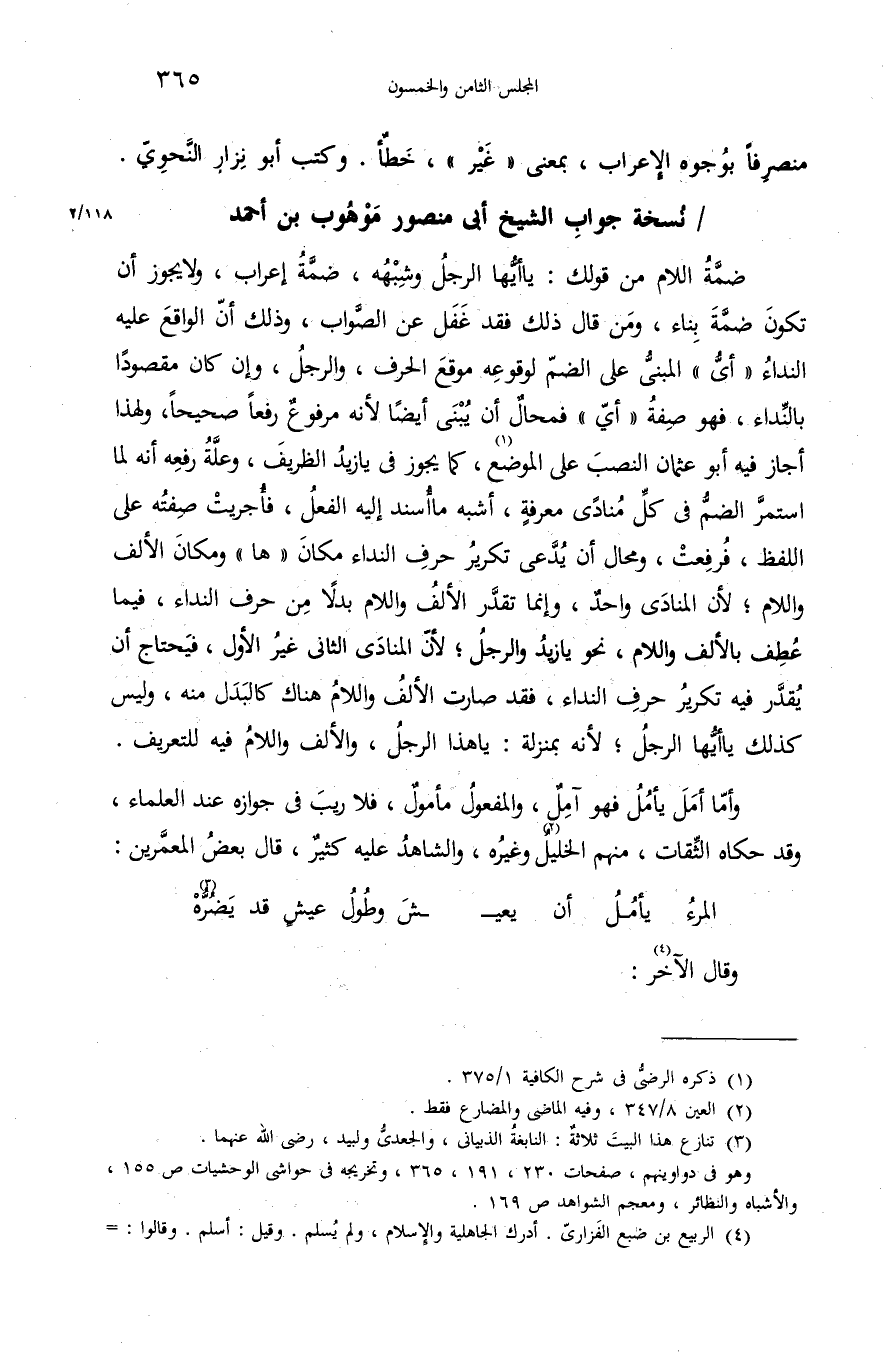 المجلس الثامن والخمسون ٣٦٥
منصرِفاً بوُجوه الإعراب ، بمعنى « غَيْر » ، خَطأٌ . وكتب أبو نِزارٍ النَّحوِيّ .
/ نُسخة جوابِ الشيخ أبى منصور مَوْهُوب بن أحمد ٢/١١٨
ضمَّةُ اللام من قولك : ياأيُّها الرجلُ وشِبْهُه ، ضمَّةُ إعراب ، ولايجوز أن
تكونَ ضمَّةَ بِناء ، ومَن قال ذلك فقد غَفَل عن الصَّواب ، وذلك أنّ الواقعَ عليه
النداءُ « أىُّ » المبنىُّ على الضمّ لوقوعِه موقعَ الحرف ، والرجلُ ، وإن كان مقصودًا
بالنِّداء ، فهو صِفةُ « أىّ » فمحالٌ أن يُبْنَى أيضًا لأنه مرفوعٌ رفعاً صحيحاً، ولهذا
أجاز فيه أبو عثمان النصبَ على الموضع(١)، كما يجوز فى يازيدُ الظريفَ ، وعلَّةُ رفعِه أنه لما
استمرَّ الضمُّ فى كلِّ مُنادًى معرفةٍ ، أشبه ماأُسند إليه الفعلُ ، فأُجريتْ صِفتُه على
اللفظ ، فُرفِعتْ ، ومحال أن يُدَّعى تكريرُ حرفِ النداء مكانَ « ها » ومكانَ الألف
واللام ؛ لأن المنادَى واحدٌ ، وإنما تقدَّر الألفُ واللام بدلًا مِن حرف النداء ، فيما
عُطِف بالألف واللام ، نحو يازيدُ والرجلُ ؛ لأنّ المنادَى الثانى غيرُ الأول ، فيَحتاج أن
يُقدَّر فيه تكريرُ حرفِ النداء ، فقد صارت الألفُ واللامُ هناك كالبَدَل منه ، وليس
كذلك ياأيُّها الرجلُ ؛ لأنه بمنزلة : ياهذا الرجلُ ، والألف واللامُ فيه للتعريف .
وأمّا أمَلَ يأمُلُ فهو آمِلٌ ، والمفعولُ مأمولٌ ، فلا ريبَ فى جوازه عند العلماء ،
وقد حكاه الثِّقات ، منهم الخليلُ(٢) وغيرُه ، والشاهدُ عليه كثيرٌ ، قال بعضُ المعمَّرين :
المرءُ يأمُـلُ أن يعيـ ـشَ وطُولُ عيشٍ قد يَضُرُّهْ(٣)
وقال الآخَر(٤) :
(١) ذكره الرضىُّ فى شرح الكافية ٣٧٥/١ .
(٢) العين ٣٤٧/٨ ، وفيه الماضى والمضارع فقط .
(٣) تنازع هذا البيتَ ثلاثةٌ : النابغةُ الذبيانى ، والجعدىُّ ولبيد ، رضى الله عنهما .
وهو فى دواوينهم ، صفحات ٢٣٠ ، ١٩١ ، ٣٦٥ ، وتخريجه فى حواشى الوحشيات ص ١٥٥ ،
والأشباه والنظائر ، ومعجم الشواهد ص ١٦٩ .
(٤) الربيع بن ضبع الفَزارىّ . أدرك الجاهلية والإسلام ، ولم يُسلم . وقيل : أسلم . وقالوا : =